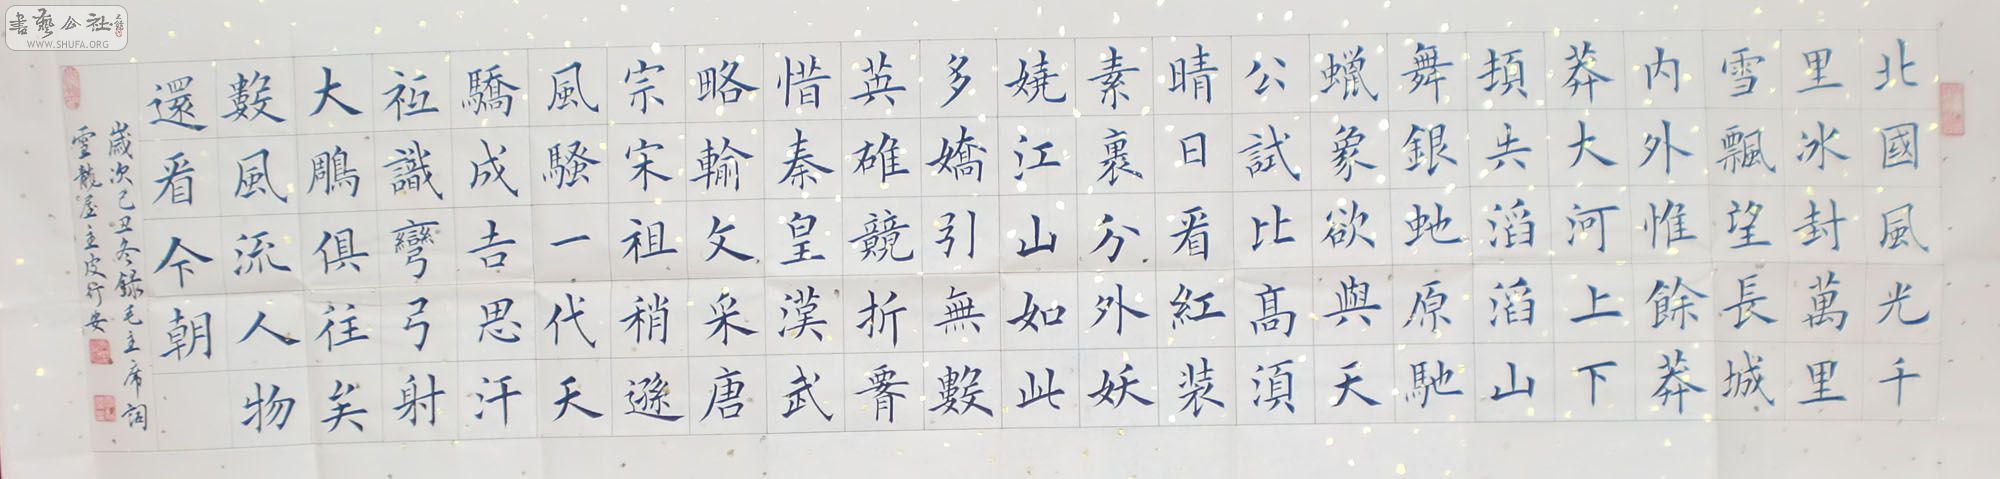 北國風光千
里冰封萬里
雪飄望長城
内外惟餘莽
莽大河上下
頓失滔滔山
舞銀虵原馳
蠟象欲與天
公試比高須
晴日看紅裝
素裹分外妖
嬈江山如此
多嬌引無數
英雄競折腰
惜秦皇漢武
略輸文采唐
宗宋祖稍遜
風騷一代天
驕成吉思汗
祗識彎弓射
大鵰俱往矣
數風流人物
還看今朝
歲次己丑冬錄毛主席詞
雪龍屋主皮行安
書藝公社
WWW.SHUFA.ORG